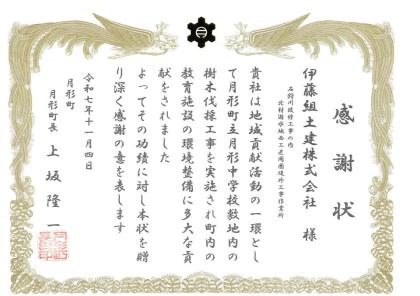 感謝状
石狩川改修工事の内
北村遊水地西工区周囲堤外工事作業所
伊藤組土建株式会社 様
貴社は地域貢献活動の一環とし
て月形町立月形中学校敷地内の
樹木伐採工事を実施され町内の
教育施設の環境整備に多大な貢
献をされました
よってその功績に対し本状を贈
り深く感謝の意を表します
令和七年十一月四日
月形町
月形町長 上坂隆一